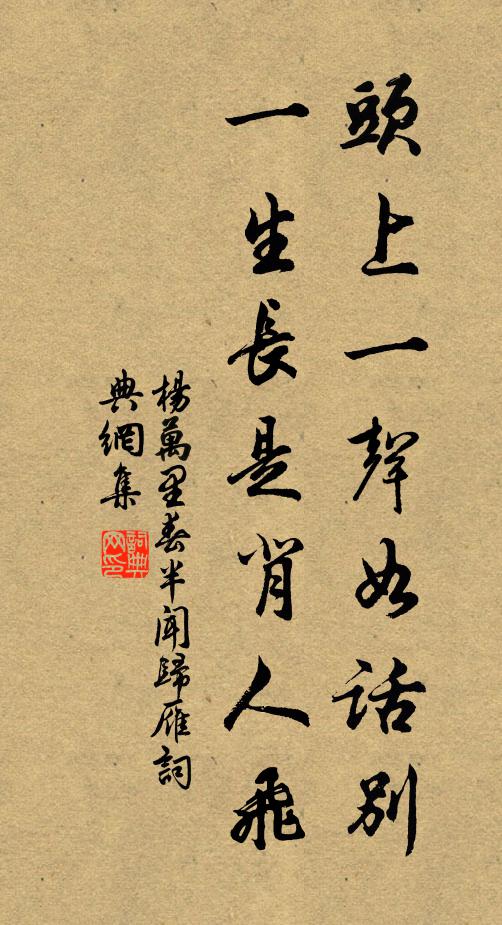 頭上一聲如話別
一生長是背人飛
楊萬里春半聞歸雁詞
典網集
詞典網印